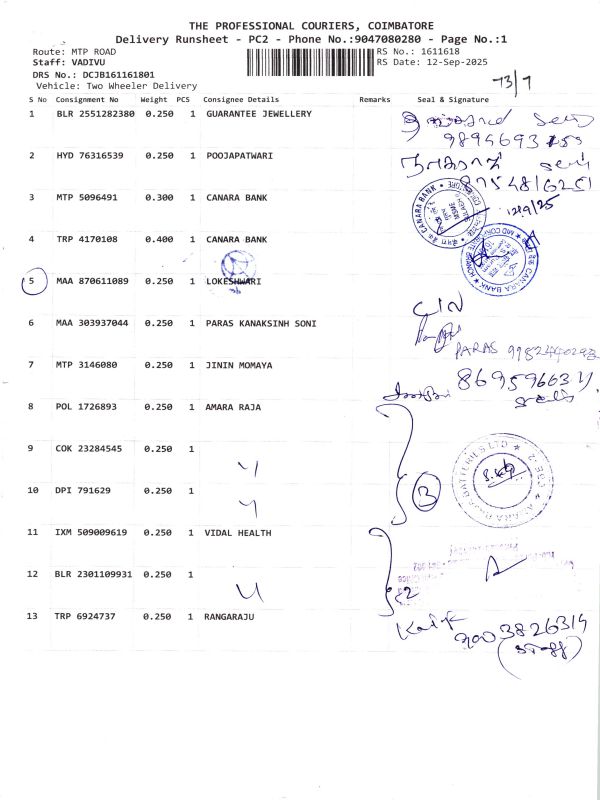 THE PROFESSIONAL COURIERS, COIMBATORE
Delivery Runsheet - PC2 - Phone No.:9047080280 - Page No.:1
Route: MTP ROAD RS No.: 1611618
Staff: VADIVU RS Date: 12-Sep-2025
DRS No.: DCJB161161801
Vehicle: Two Wheeler Delivery
S No Consignment No Weight PCS Consignee Details Remarks Seal & Signature
1 BLR 2551282380 0.250 1 GUARANTEE JEWELLERY
2 HYD 76316539 0.250 1 POOJAPATWARI
3 MTP 5096491 0.300 1 CANARA BANK
12/9/25
4 TRP 4170108 0.400 1 CANARA BANK
5 MAA 870611089 0.250 1 LOKESHWARI
6 MAA 303937044 0.250 1 PARAS KANAKSINH SONI
PARAS
7 MTP 3146080 0.250 1 JININ MOMAYA
8 POL 1726893 0.250 1 AMARA RAJA
9 COK 23284545 0.250 1
10 DPI 791629 0.250 1
3
11 IXM 509009619 0.250 1 VIDAL HEALTH
12 BLR 2301109931 0.250 1
2
13 TRP 6924737 0.250 1 RANGARAJU
9003826314
(staff)